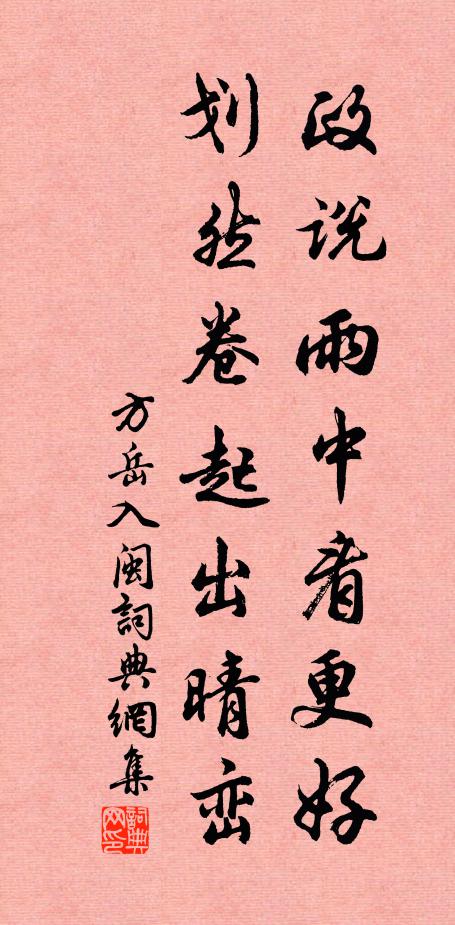 政说雨中看更好
划然卷起出晴峦
方岳入闽詞典網集
詞典网印